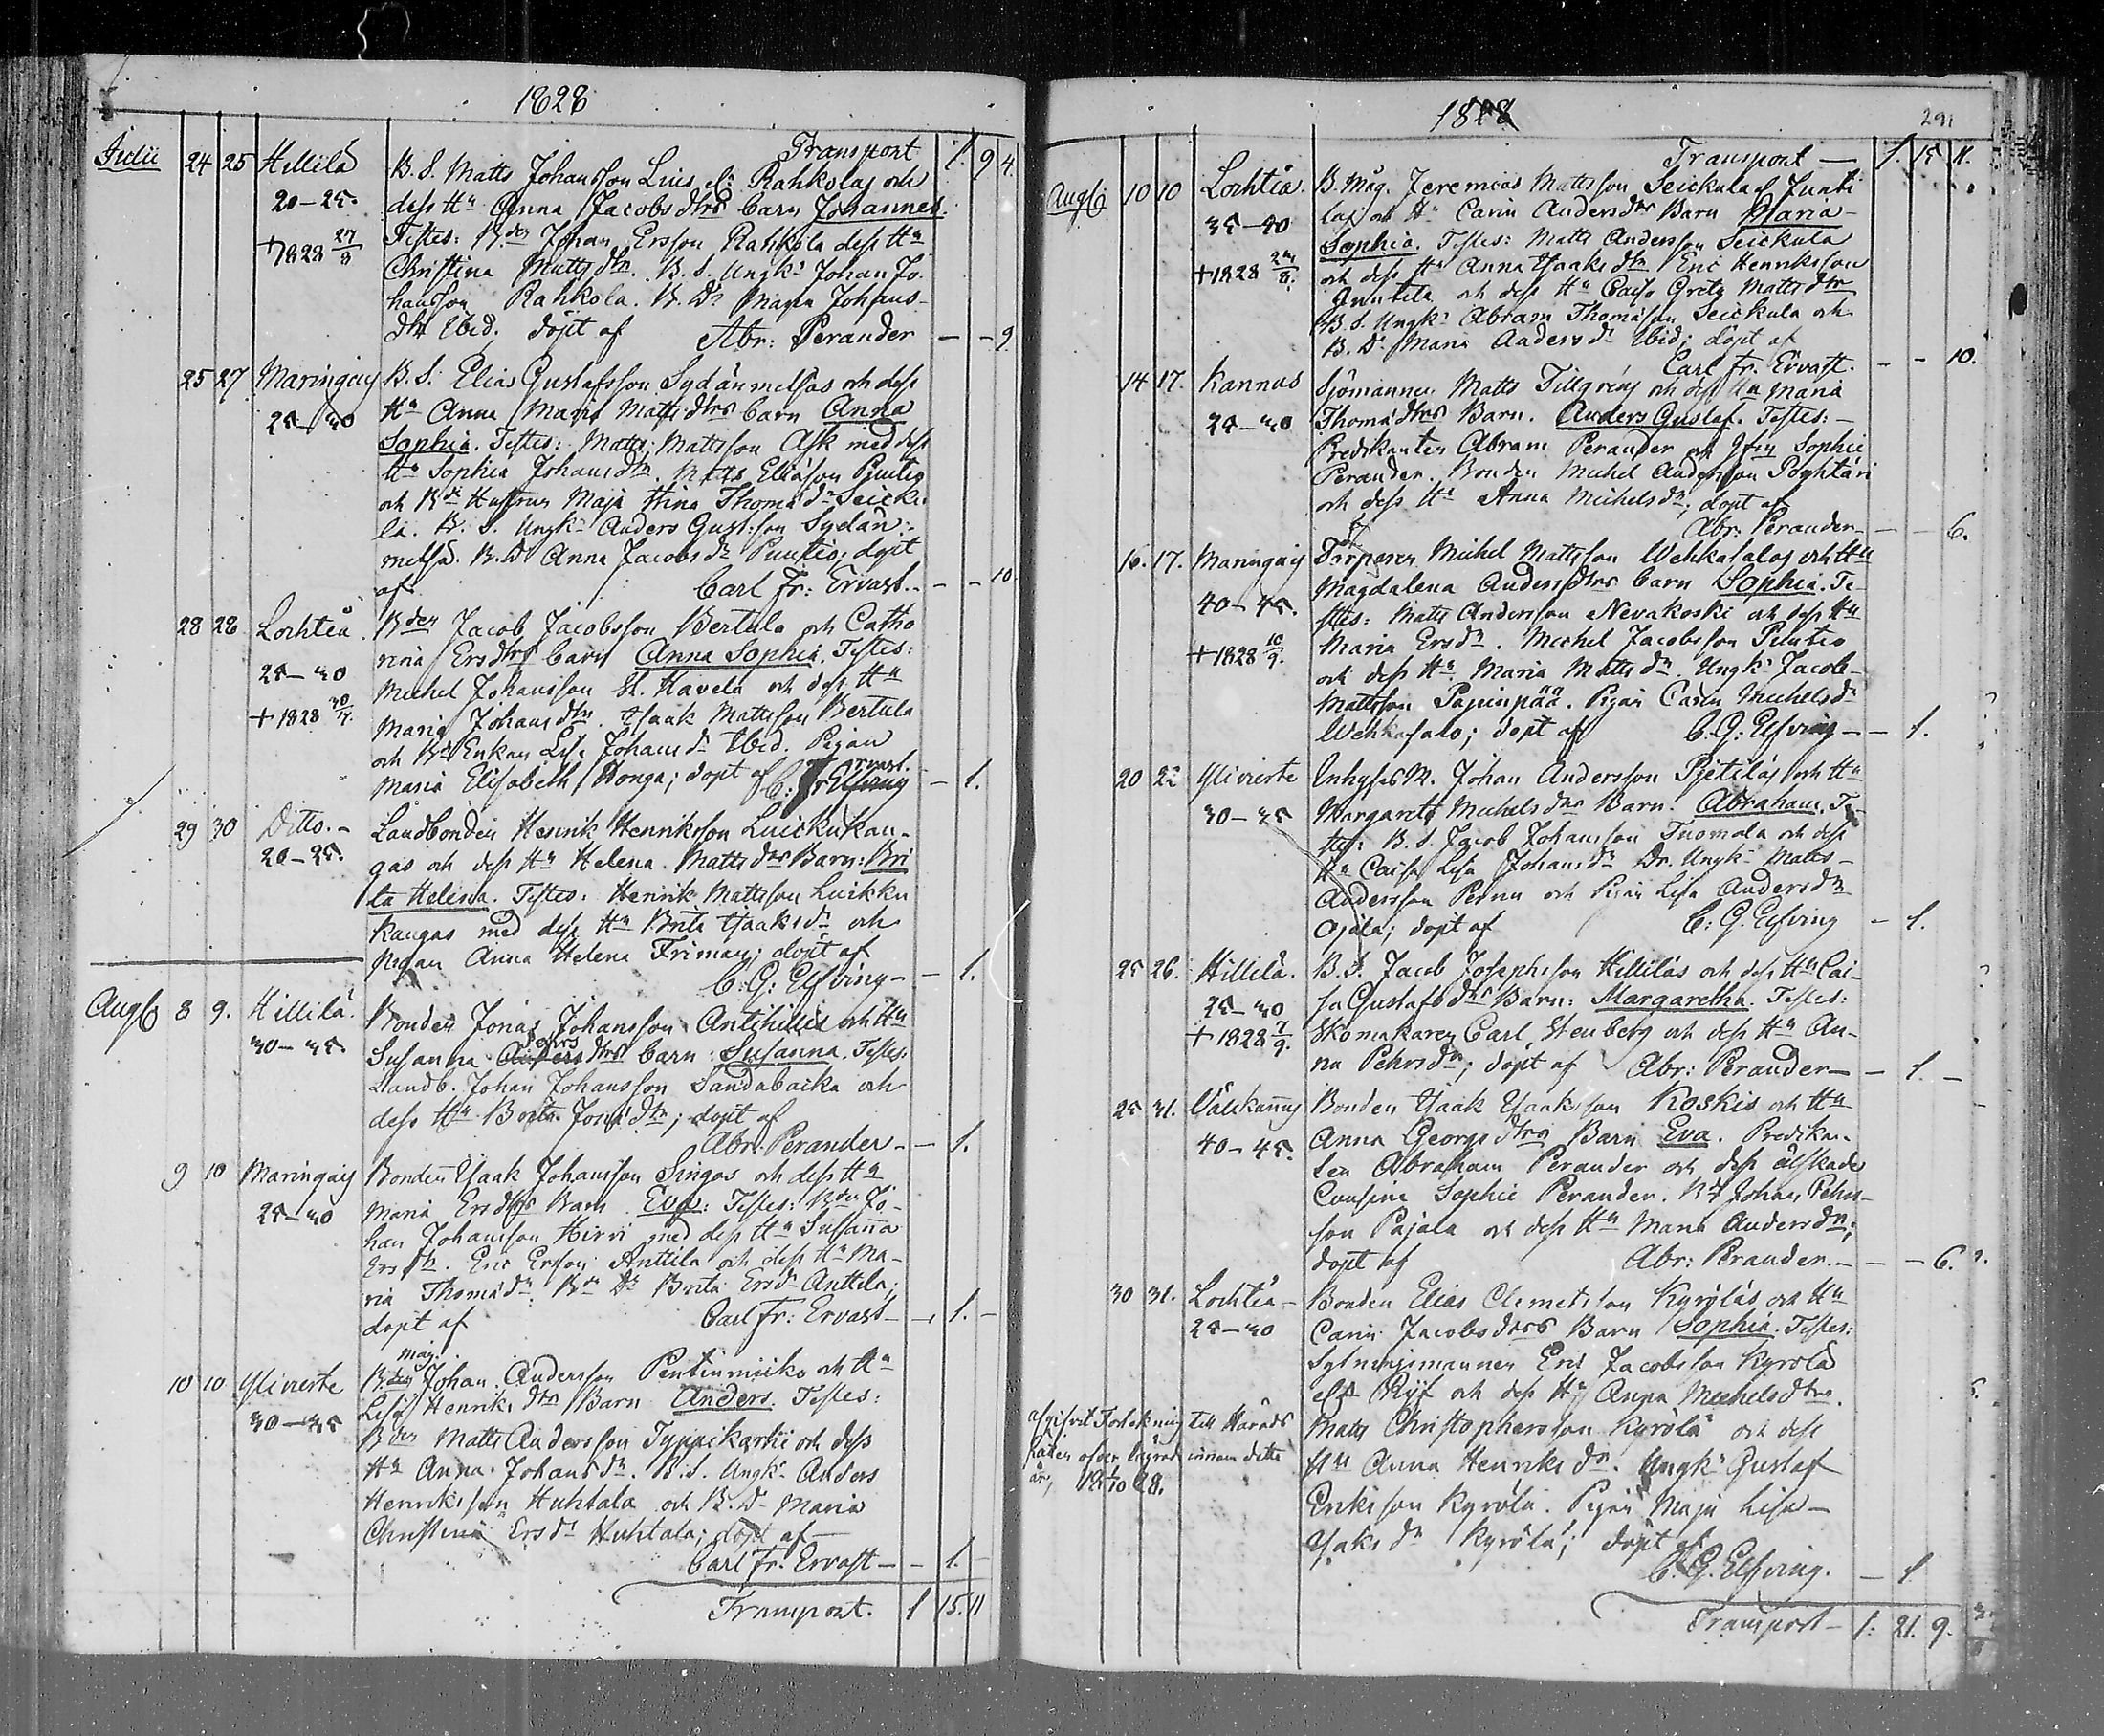 1828
Transport 1 9 4.
Julii 24 25 Hillilä B. S. Matts Johansson Liuis el: Rahkolas och
20–25. dess Hu Anna Jacobsdtrs barn Johannes.
+1828 27/8 Testes: Bden Johan Ersson Rahkola dess Hu
Christina Mattsdtr. B. S. Ungk: Johan Jo-
hansson Rahkola. B. Dr Maria Johans-
dtr Ibid. döpt af Abr: Perander — – 9
25 27 Maringais B. S. Elias Gustafsson Sydänmetsäs och dess
25–30 Hu Anna Maria Mattsdtrs barn Anna
Sophia. Testes: Matts Mattsson Ask med dess
Hu Sophia Johansdtr. Matts Eliasson Puutio
och Bde Hustrun Maja Stina Thomædr Seicku-
la. B. S. Ungk: Anders Gust:son Sydän-
metsä. B. Dr Anna Jacobsdr Puutio; döpt
af Carl Fr: Ervast. – – 10
28 28 Lochteå Bden Jacob Jacobsson Bertula och Catha
25–30 rina Ersdtrs barn Anna Sophia. Testes:
+1828 30/7. Michel Johansson St. Kavela och dess Hu
Maria Johansdtr. Isaak Mattsson Bertula
och Be Enkan Lisa Johansdr Ibid. Pigan
Ervast.
Maria Elisabeth Honga; döpt af C: Fr Elfving – 1.
29 30 Ditto. – Landbonden Henrik Henriksson Luickukan-
20–25. gas och dess Hu Helena Mattsdtrs Barn: Bri
ta Helena. Testes: Henrik Mattsson Luikku
kangas med dess Hu Brita Isaaksdr och
pigan Anna Helena Friman; döpt af
C: G: Elfving – – 1.
Augti 8 9. Hillilä. Bonden Jonas Johansson Antihillis och Hu
30–35. Susanna Andersdtrs barn: Susanna. Testes:
Landb. Johan Johansson Sandabacka och
dess Hu Brita Jonædtr; döpt af
Abr: Perander – – 1.
9 10 Maringais Bonden Isaak Johansson Singos och dess Hu
25–30 Maria Ersdtrs Barn Eva: Testes: Bden Jo-
han Johansson Hirvi med dess Hu Susanna
Ersdtr. Eric Ersson Anttila och dess Hu Ma-
ria Thomædr. Be Dr Brita Ersdr Anttila;
döpt af Carl Fr: Ervast – – 1. –
mag.
10 10 Ylivieste Bden Johan Andersson Pentinmiiko och Hu
30–35 Lisa Henriksdtrs Barn Anders. Testes:
Bden Matts Andersson Typpikarhi och dess
Hu Anna Johansdr. B. S. Ungk: Anders
Henriksson Huhtala och B. Dr Maria
Christina Ersdr Huhtala; döpt af
Carl Fr: Ervast – – 1. –
Transport. 1 15. 11
1828 291
Transport — 1. 15 11.
Augti 10 10 Lochteå. B. Måg. Jeremias Mattsson Seickulas Junti
35–40 las och Hu Carin Andersdtrs Barn Maria
+1828 24/8. Sophia. Testes: Matts Andersson Seickula
och dess Hu Anna Isaaksdtr Eric Henriksson
Juntila och dess Hu Caisa Greta Mattsdtr
B. S. Ungk: Abram Thomasson Seickula och
B. Dr Maria Andersdr Ibid; döpt af
Carl Fr. Ervast. – – 10.
14 17. Kannus Sjömannen Matts Tillgrens och dess Hu Maria
25–30 Thomædtrs Barn. Anders Gustaf. Testes: –
Predikanten Abram Perander och Jfrn Sophie
Perander. Bonden Michel Andersson Pöyhtäri
och dess Hu Anna Michelsdr; döpt af
Abr: Perander – – 6.
16. 17. Maringais Torparen Michel Mattsson Wehkasalos och Hu
40–45. Magdalena Andersdtrs barn Sophia. Te-
+1828 10/9. stes: Matts Andersson Nevakoski och dess Hu
Maria Ersdr. Michel Jacobsson Puutio
och dess Hu Maria Mattsdr. Ungk: Jacob
Mattsson Pajunpää. Pigan Carin Michelsdr
Wehkasalo; döpt af C. G: Elfving – – 1.
20 22 Ylivieste Inhyses M. Johan Andersson Pjetiläs och Hu
30–35 Margareta Michelsdtrs Barn: Abraham. Te-
stes: B. S. Jacob Johansson Tuomala och dess
Hu Caisa Lisa Johansdr Dr. Ungk: Matts
Andersson Pernu och Pigan Lisa Andersdtr
Ojala; döpt af C: G. Elfving – 1.
25 26. Hillilä. B. S. Jacob Josephsson Hilliläs och dess Hu Cai-
25–30 sa Gustafsdtrs Barn: Margaretha. Testes:
+1828 7/9. Skomakaren Carl Stenberg och dess Hu An-
na Pehrsdr; döpt af Abr: Perander – – 1. –
25 31. Välikannus Bonden Isaak Isaksson Koskis och Hu
40–45. Anna Georgsdtrs Barn Eva. Predikan-
ten Abraham Perander och dess älskade
Cousine Sophie Perander. Bd Johan Pehrs-
son Pajala och dess Hu Maria Andersdtr;
döpt af Abr: Perander. – – – 6.
30 31. Lochteå – Bonden Elias Clemetsson Kyröläs och Hu
25–30 Carin Jacobsdtrs Barn Sophia. Testes:
Sytningsmannen Eric Jacobsson Kyrölä
elr Ryf och dess Hu Anna Michelsdtr.
afgifvet Forteckning till Härads Matts Christophersson Kyrölä och dess
Rätten innom detta Hu Anna Henriksdr. Ungk: Gustaf
år, 28. Eriksson Kyrölä. Pigan Maja Lisa
Isaksdr Kyrölä; döpt af
C. G. Elfving. – 1
Transport – 1: 21. 9.